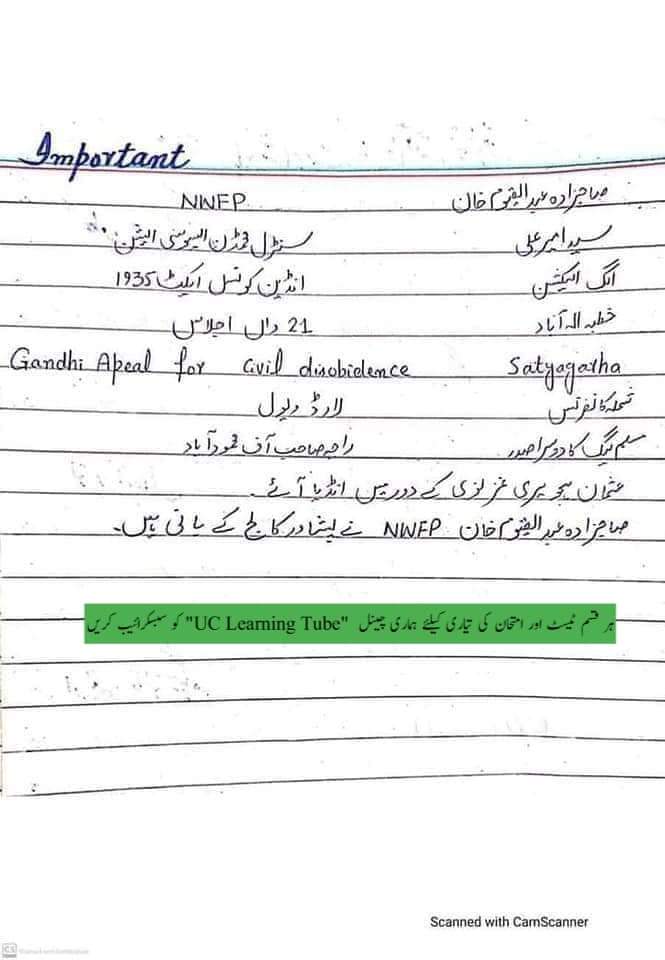 Important
صاحبزادہ عبدالقیوم خان NWFP
سید امیر علی سنٹرل محمڈن ایسوسی ایشن
الگ الیکشن انڈین کونسل ایکٹ 1935
خطبہ الہ آباد 21 واں اجلاس
Satyagarha Gandhi Apeal for Civil disobidence
شملہ کانفرنس لارڈ ویول
مسلم لیگ کا دوسرا صدر راجہ صاحب آف محمودآباد
عثمان ہجویری غزنوی کے دور میں انڈیا آئے۔
صاحبزادہ عبدالقیوم خان NWFP نے پشاور کالج کے بانی ہیں۔
ہر قسم ٹیسٹ اور امتحان کی تیاری کیلئے ہماری چینل "UC Learning Tube" کو سبسکرائیب کریں
Scanned with CamScanner
CS Scanned with CamScanner